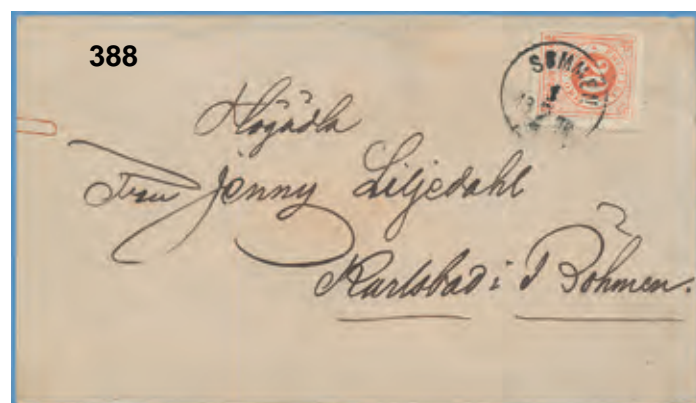 388
SOMMEN
20
Högädla
Fru Jenny Liljedahl
Karlsbad i Böhmen.